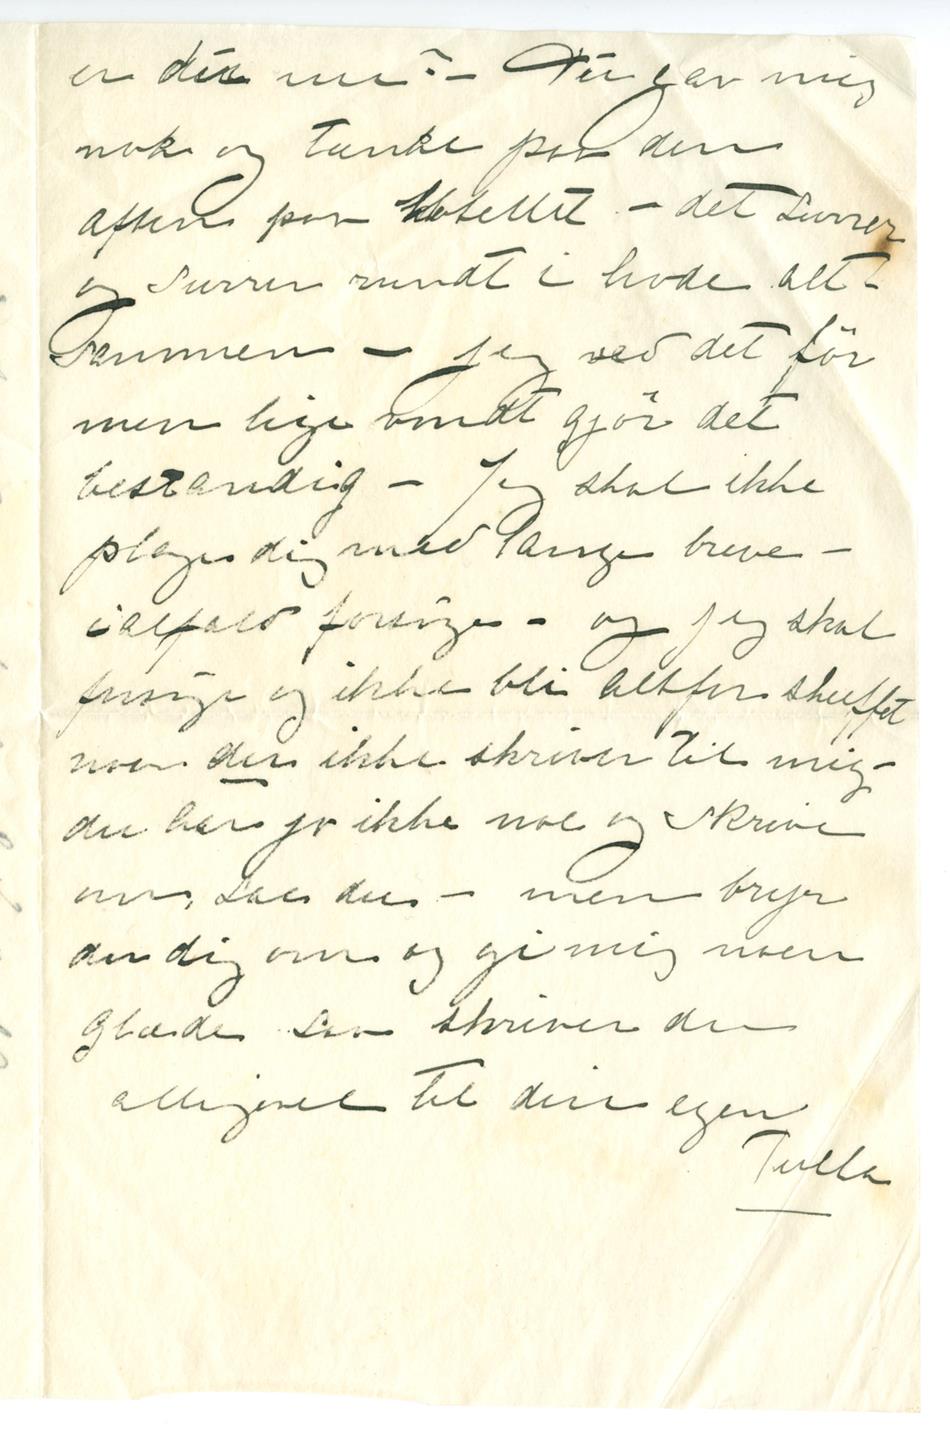 er du nu? – Du gav mig
nok og tænke paa den
aften paa Hotellet – det surrer
og surrer rundt i hode alt-
sammen – jeg ved det för
men lige vondt gjör det
bestandig – Jeg skal ikke
plage dig med lange breve –
ialfald forsöge – og jeg skal
forsöge og ikke bli altfor skuffet
naar du ikke skriver til mig –
du har jo ikke noe og skrive
om, saa du – men bryr
du dig om og gi mig noen
glæde saa skriver du
alligevel til din egen
Tulla